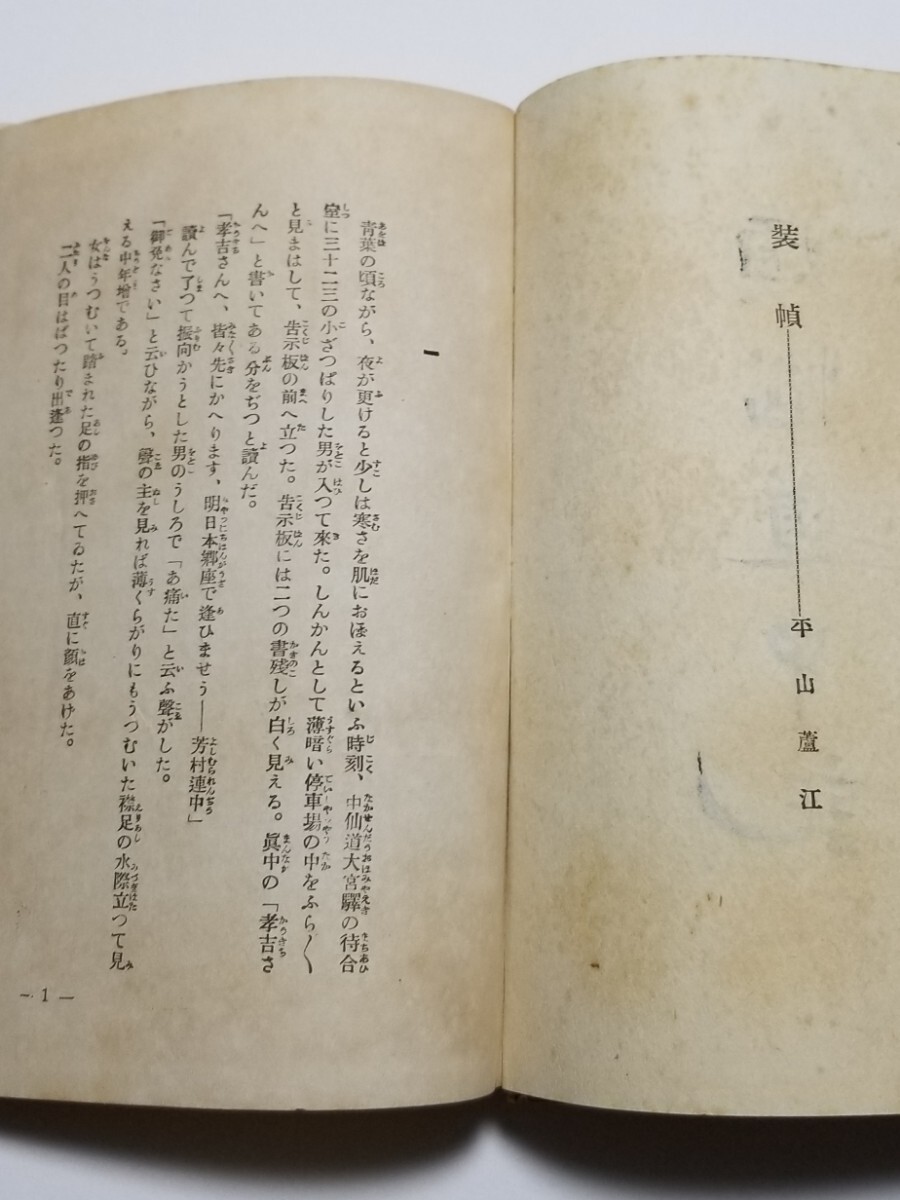 装幀――平山蘆江
一
青葉の頃ながら、夜が更けると少しは寒さを肌におぼえるといふ時刻、中仙道大宮驛の待合
室に三十二三の小ざつぱりした男が入つて來た。しんかんとして薄暗い停車場の中をふら〱
と見まはして、告示板の前へ立つた。告示板には二つの書殘しが白く見える。眞中の「孝吉さ
んへ」と書いてある分をぢつと讀んだ。
「孝吉さんへ、皆々先にかへります、明日本郷座で逢ひませう――芳村連中」
讀んで了つて振向かうとした男のうしろで「あ痛た」と云ふ聲がした。
「御免なさい」と云ひながら、聲の主を見れば薄くらがりにもうつむいた襟足の水際立つて見
える中年增である。
女はうつむいて踏まれた足の指を押へてゐたが、直に顏をあげた。
二人の目はばつたり出逢つた。
— 1 —